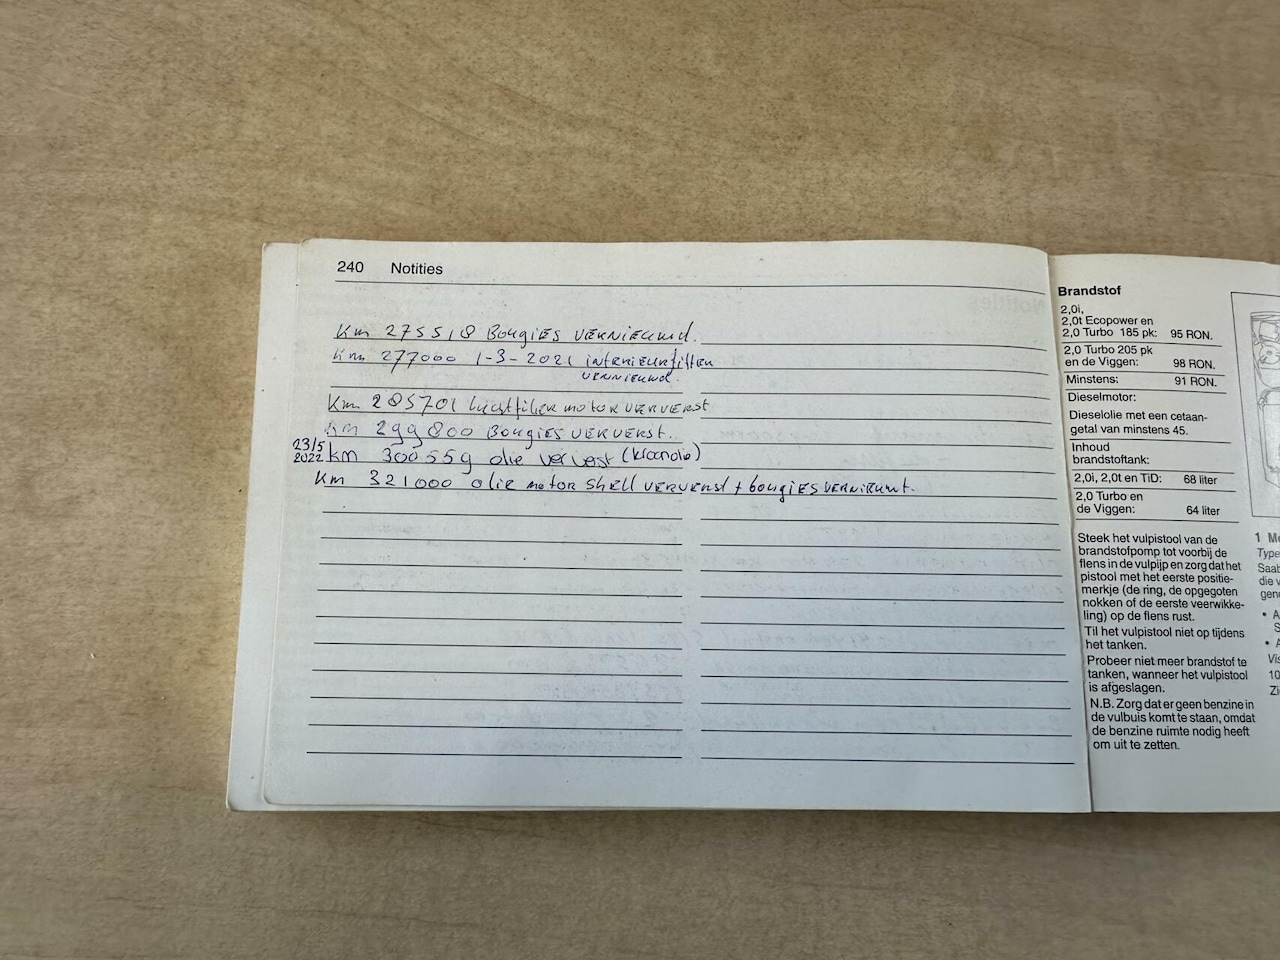 240 Notities
Km 275518 Bougies VERNIEUWD.
Km 277000 1-3-2021 interieurfilter
VERNIEUWD.
Km 285701 luchtfilter motor VERVERST
Km 299800 Bougies VERVERST.
23/5
2022 km 300559 olie ververst (kroonolie)
Km 321000 olie motor shell VERVERST + bougies VERNIEUWT.
Brandstof
2,0i,
2,0t Ecopower en
2,0 Turbo 185 pk: 95 RON.
2,0 Turbo 205 pk
en de Viggen: 98 RON.
Minstens: 91 RON.
Dieselmotor:
Dieselolie met een cetaan-
getal van minstens 45.
Inhoud
brandstoftank:
2,0i, 2,0t en TiD: 68 liter
2,0 Turbo en
de Viggen: 64 liter
Steek het vulpistool van de
brandstofpomp tot voorbij de
flens in de vulpijp en zorg dat het
pistool met het eerste positie-
merkje (de ring, de opgegoten
nokken of de eerste veerwikke-
ling) op de flens rust.
Til het vulpistool niet op tijdens
het tanken.
Probeer niet meer brandstof te
tanken, wanneer het vulpistool
is afgeslagen.
N.B. Zorg dat er geen benzine in
de vulbuis komt te staan, omdat
de benzine ruimte nodig heeft
om uit te zetten.
1
Type
Saab
die